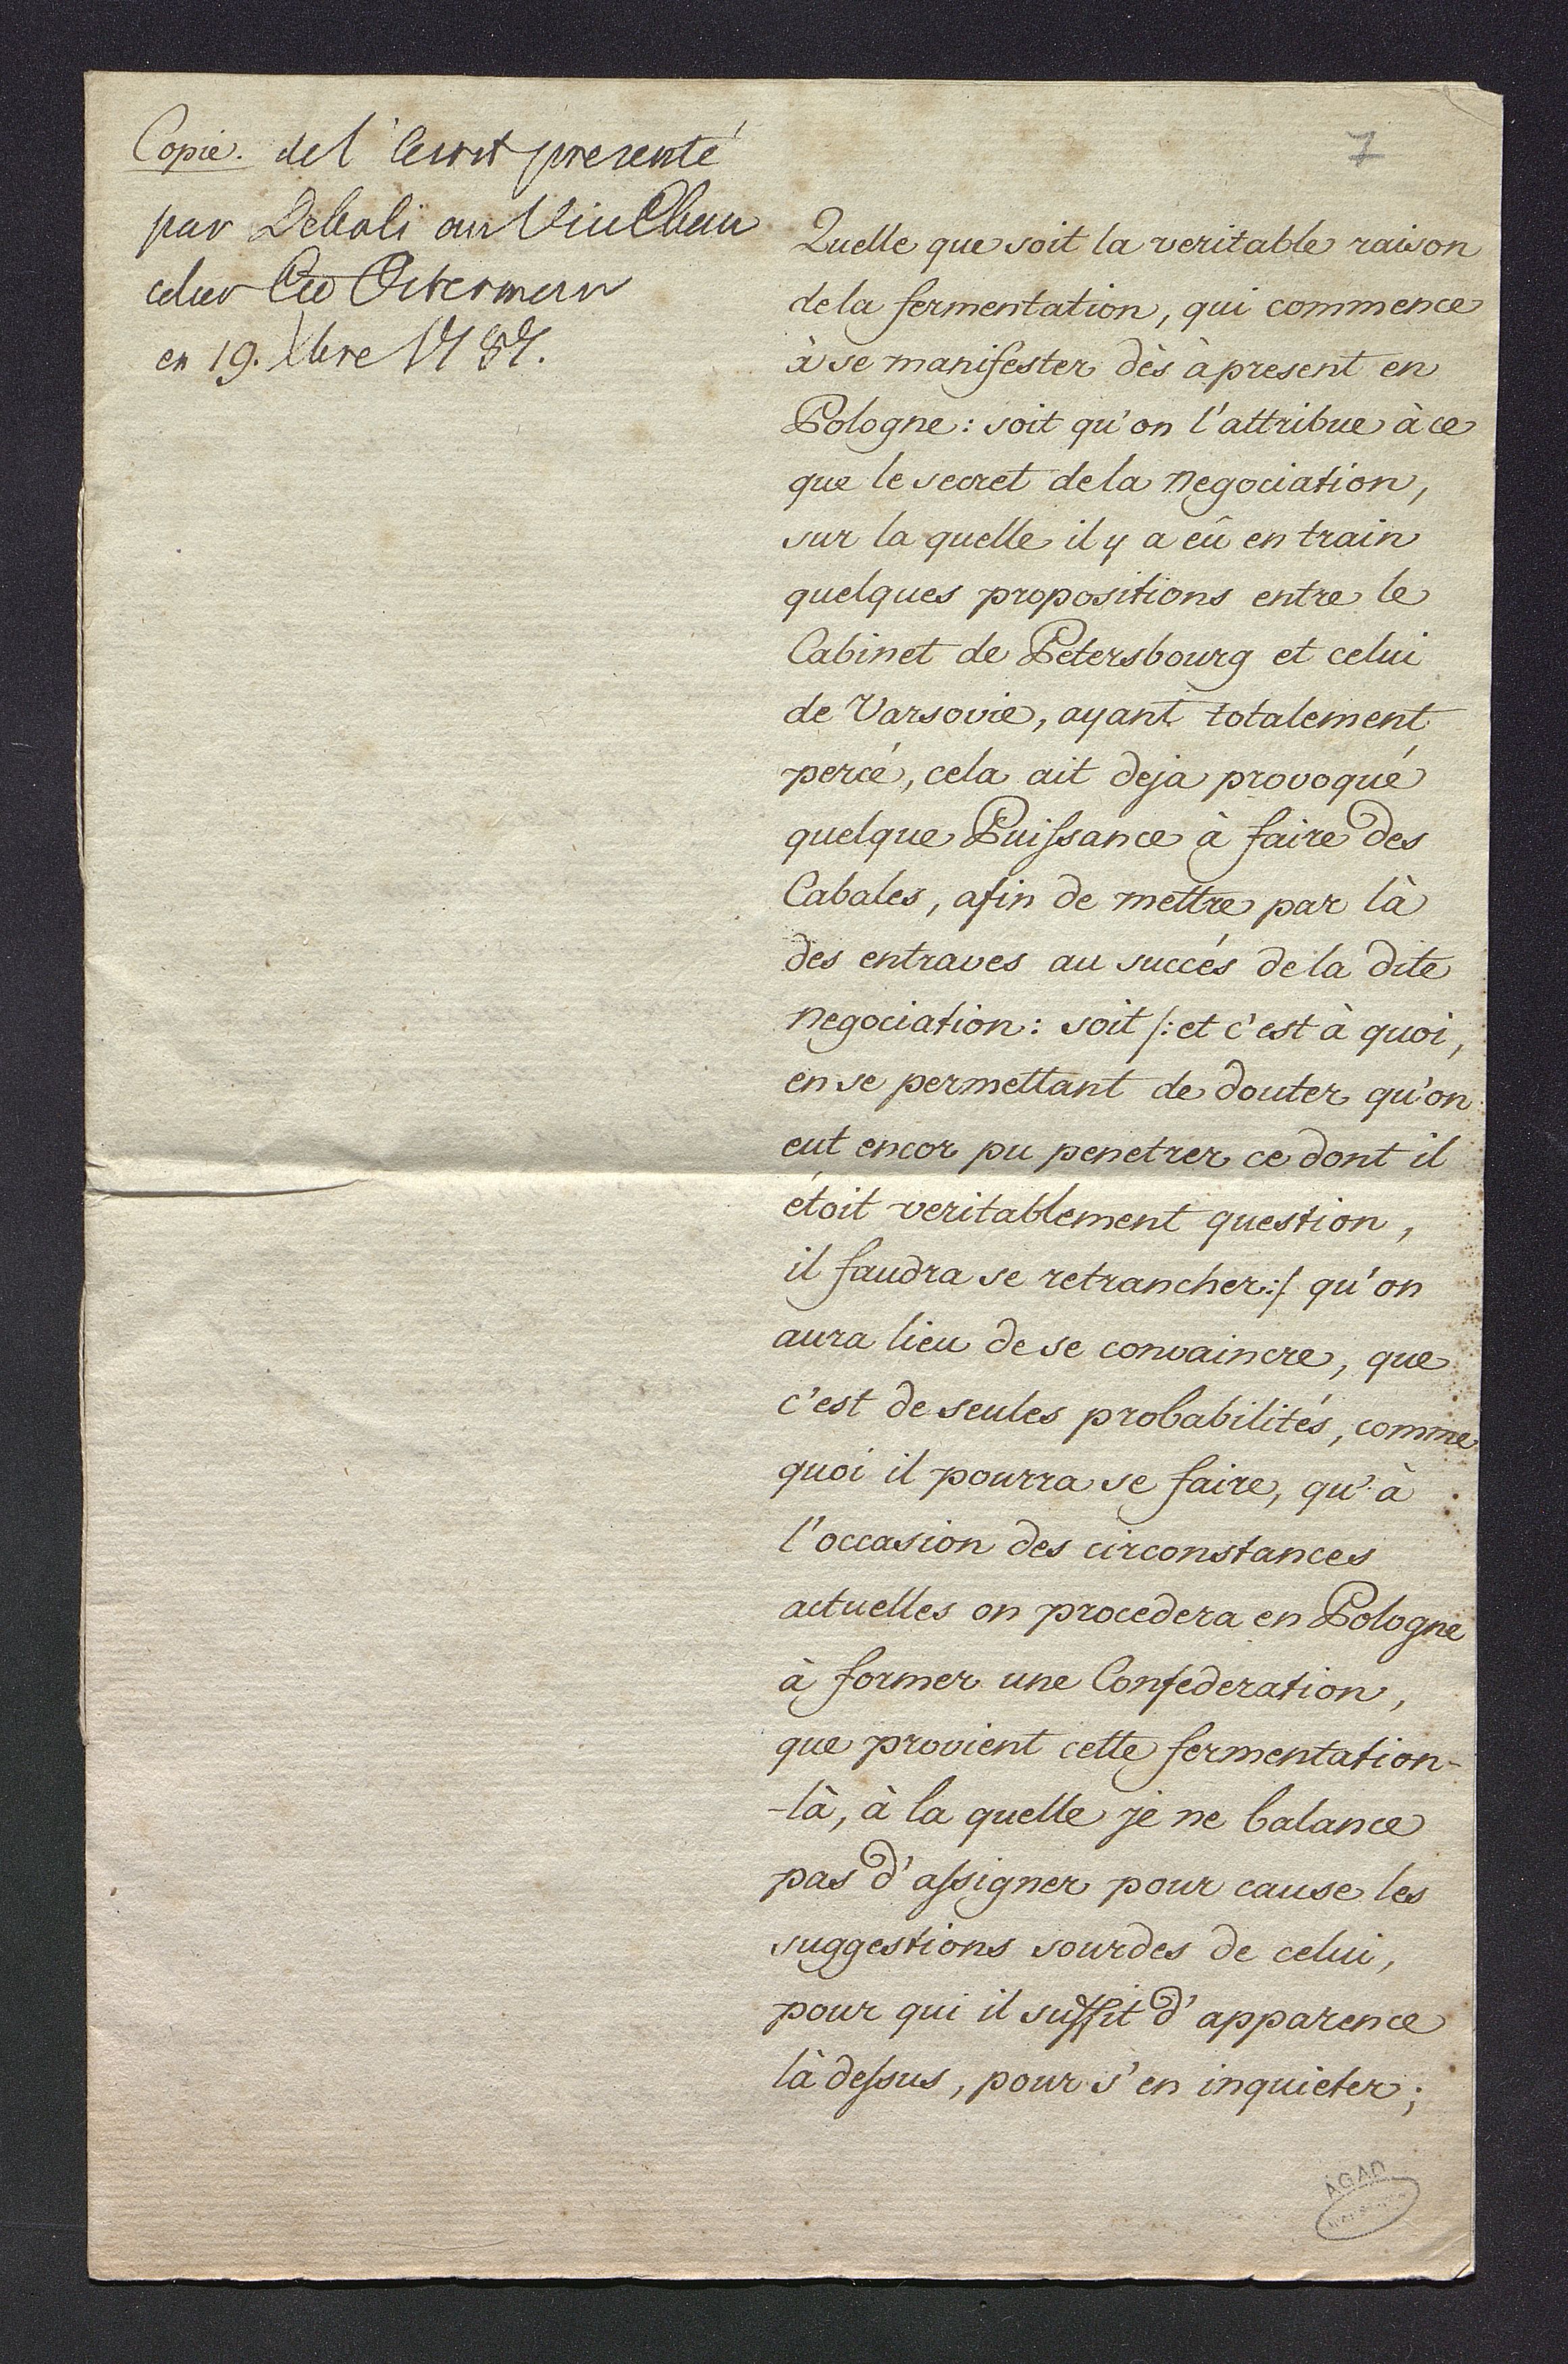 Copie. del'Ecrit presenté
par Deboli au Vice Chan
celier Cte Osterman
en 19. Xbre 1787.
7
Quelle que soit la veritable raison
dela fermentation, qui commence
à se manifester dès àpresent en
Pologne: soit qu'on l'attribue àce
que le secret dela negociation,
sur la quelle il y a eû en train
quelques propositions entre le
Cabinet de Petersbourg et celui
de Varsovie, ayant totalement
percé, cela ait deja provoqué
quelque Puissance à faire des
Cabales, afin de mettre par là
des entraves au succés dela dite
negociation: soit /: et c'est à quoi,
en se permettant de douter qu'on
eut encor pu penetrer ce dont il
étoit veritablement question,
il faudra se retrancher :/ qu'on
aura lieu de se convaincre, que
c'est de seules probabilités, comme
quoi il pourra se faire, qu'à
l'occasion des circonstances
actuelles on procedera en Pologne
à former une Confederation,
que provient cette fermentation-
-là, à la quelle je ne balance
pas d'assigner pour cause les
suggestions sourdes de celui,
pour qui il suffit d'apparence
là dessus, pour s'en inquieter;
AGAD